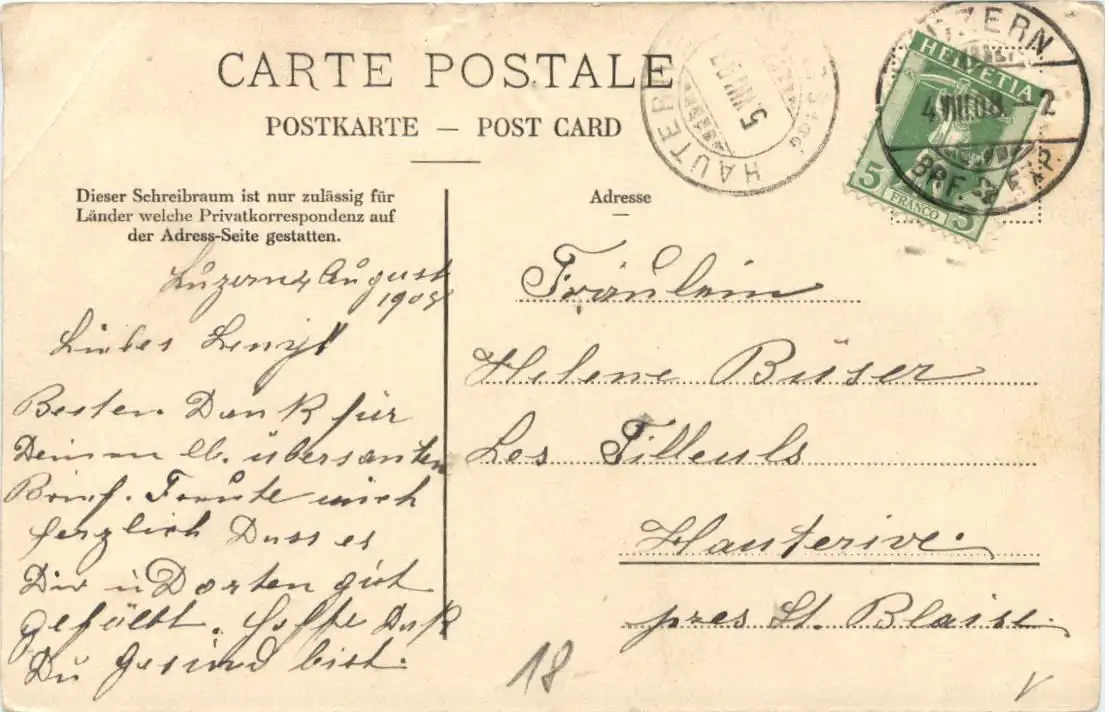 CARTE POSTALE
POSTKARTE — POST CARD
Dieser Schreibraum ist nur zulässig für
Länder welche Privatkorrespondenz auf
der Adress-Seite gestatten.
Adresse
HAUTERIVE
5 VIII 08
LUZERN
4.VIII.08. - 2
BRF. EXP.
HELVETIA
5 5
FRANCO
Luzern 4 August
1908
Liebes Leny!
Besten Dank für
Deinen lb. übersanten
Brief. Freute mich
herzlich Dass es
Dir u Dorten gut
gefällt. Hoffe Daß
Du Gesund bist.
Fräulein
Helene Büser
Les Tilleuls
Hauterive.
pres St. Blaise
18-